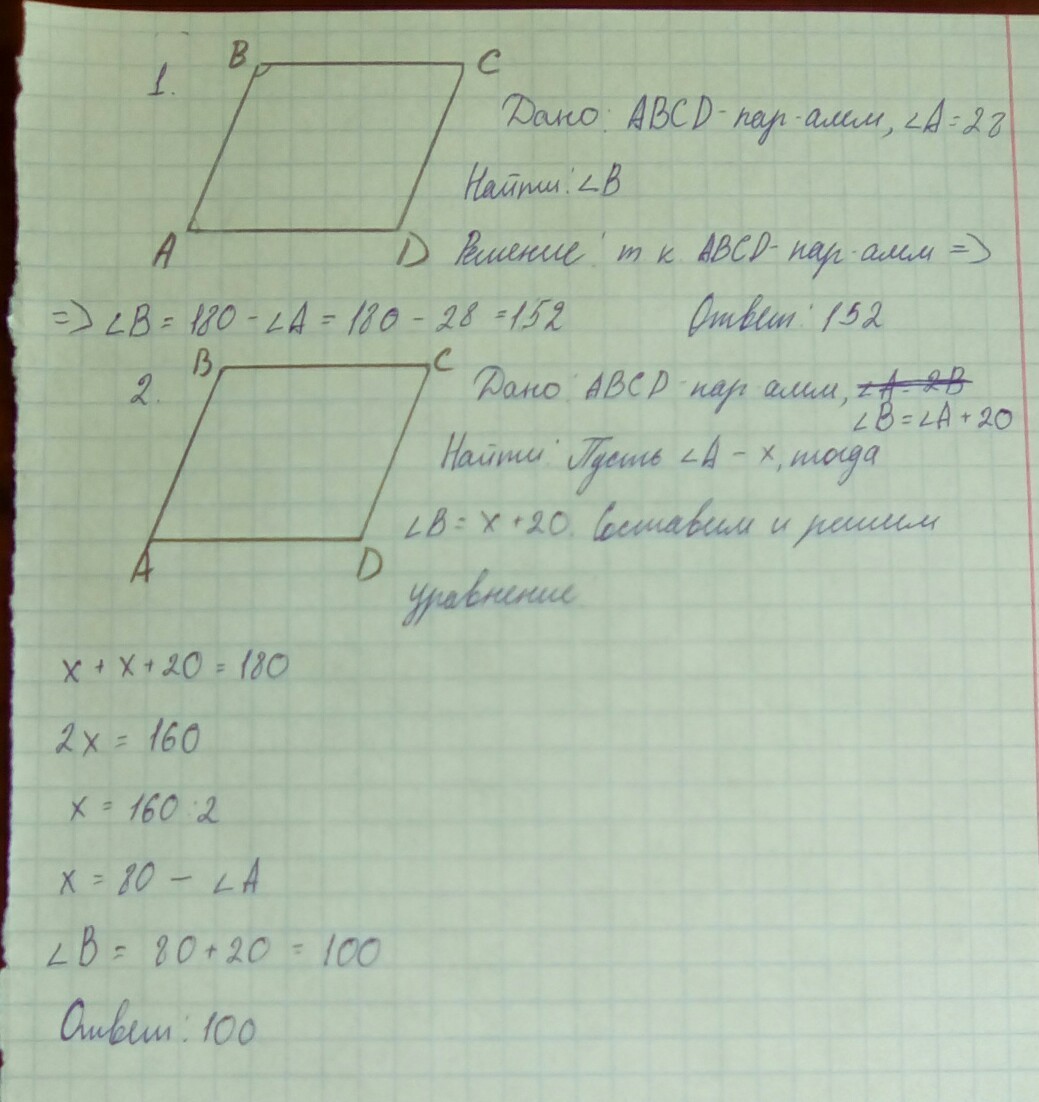 1.
B C
Дано: ABCD-пар-алм, ∠A=28
Найти: ∠B
A D Решение: т к ABCD-пар-алмм =>
=> ∠B = 180 - ∠A = 180 - 28 = 152 Ответ: 152
B C
2. Дано: ABCD пар алмм, ∠A = 2B
∠B = ∠A + 20
Найти: Пусть ∠A - x, тогда
∠B = x + 20. Составим и решим
A D
уравнение
x + x + 20 = 180
2x = 160
x = 160:2
x = 80 - ∠A
∠B = 80 + 20 = 100
Ответ: 100